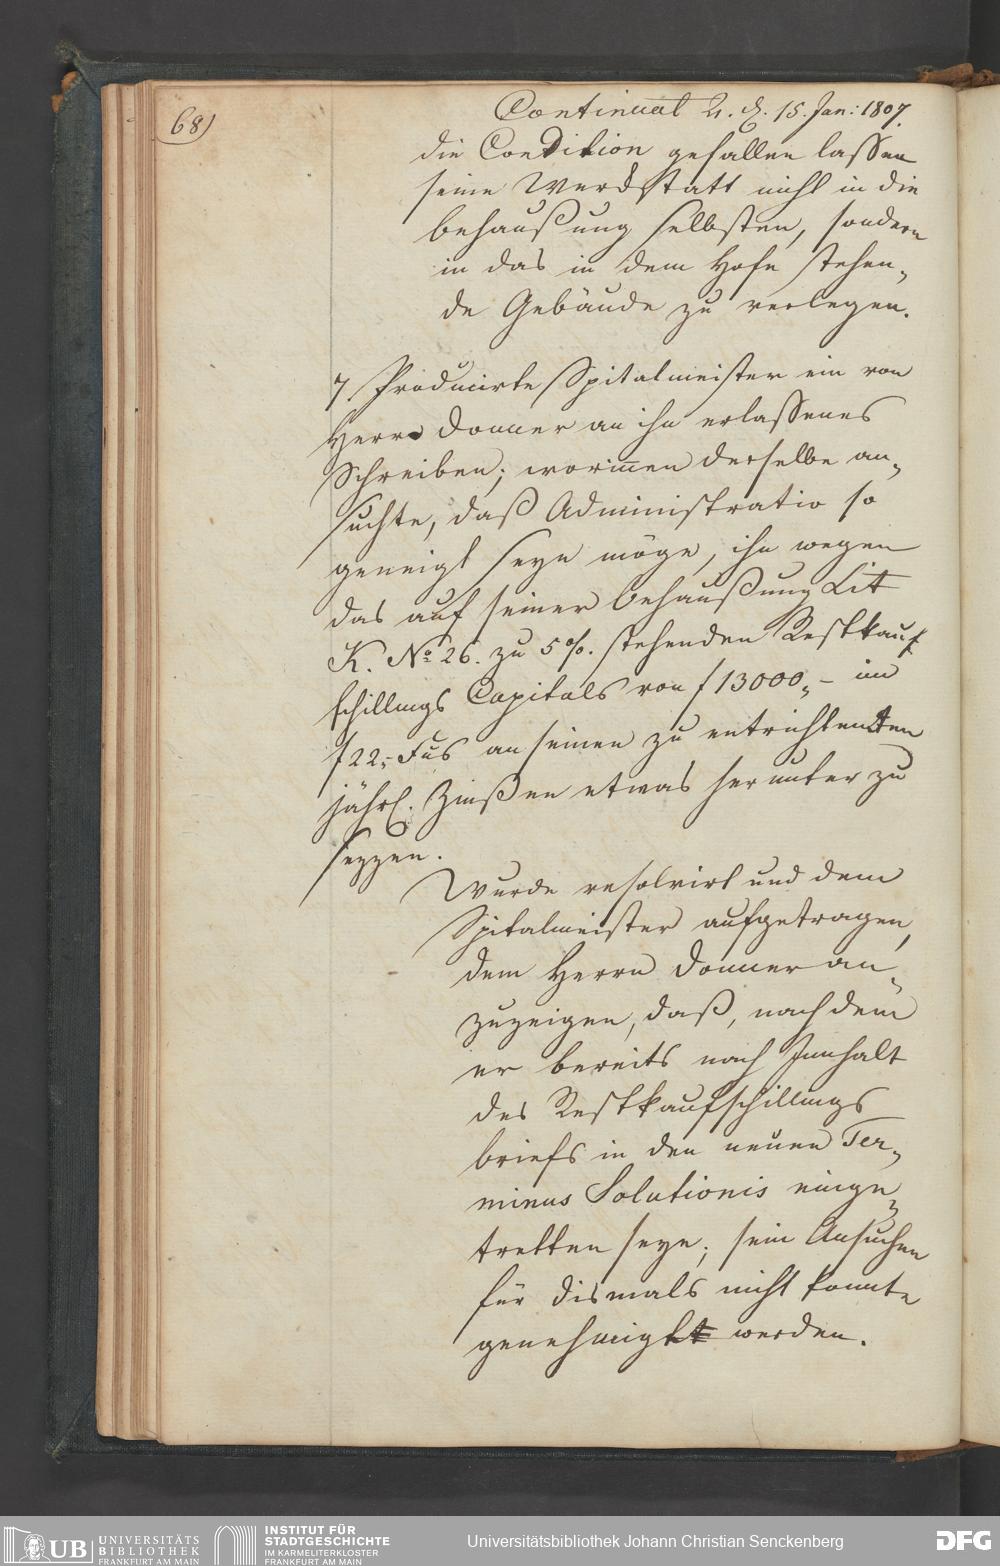 68)
Continuat 4. d. 15. Jan: 1807.
die Condition gefallen lassen
seine Werckstatt nicht in die
behaußung selbsten, sondern
in das in dem Hofe stehen„
de Gebäude zu verlegen.
7 Producirte Spitalmeister ein von
Herrn Donner an ihn erlassenes
Schreiben; worinnen derselbe an„
suchte, daß Administratio so
geneigt seyn möge, ihn wegen
das auf seiner behaußung Lit
K. No 26. zu 5 %. stehenden Restkauf
schillings Capitals von f 13000„ – im
f 22„ Fus an seinen zu entrichtenden
jährl. Zinßen etwas herunter zu
sezzen.
Wurde resolvirt und dem
Spitalmeister aufgetragen,
dem Herrn Donner an„
zuzeigen, daß, nach dem
er bereits nach Innhalt
des Restkaufschillings
briefs in den neuen Ter„
minus Solutionis einge„
tretten seye; sein Ansuchen
für dismals nicht konnte
genehmigt werden.
UB UNIVERSITÄTS
BIBLIOTHEK
FRANKFURT AM MAIN
INSTITUT FÜR
STADTGESCHICHTE
IM KARMELITERKLOSTER
FRANKFURT AM MAIN
Universitätsbibliothek Johann Christian Senckenberg
DFG